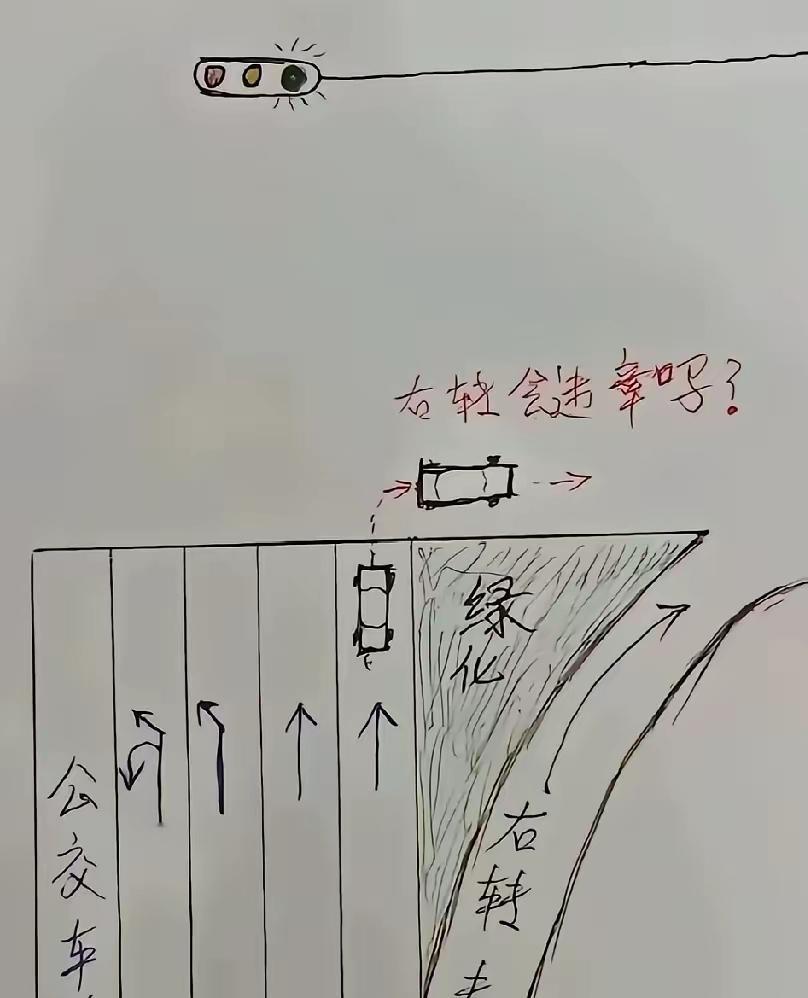 右转会违章吗？
绿化
公交车
右转